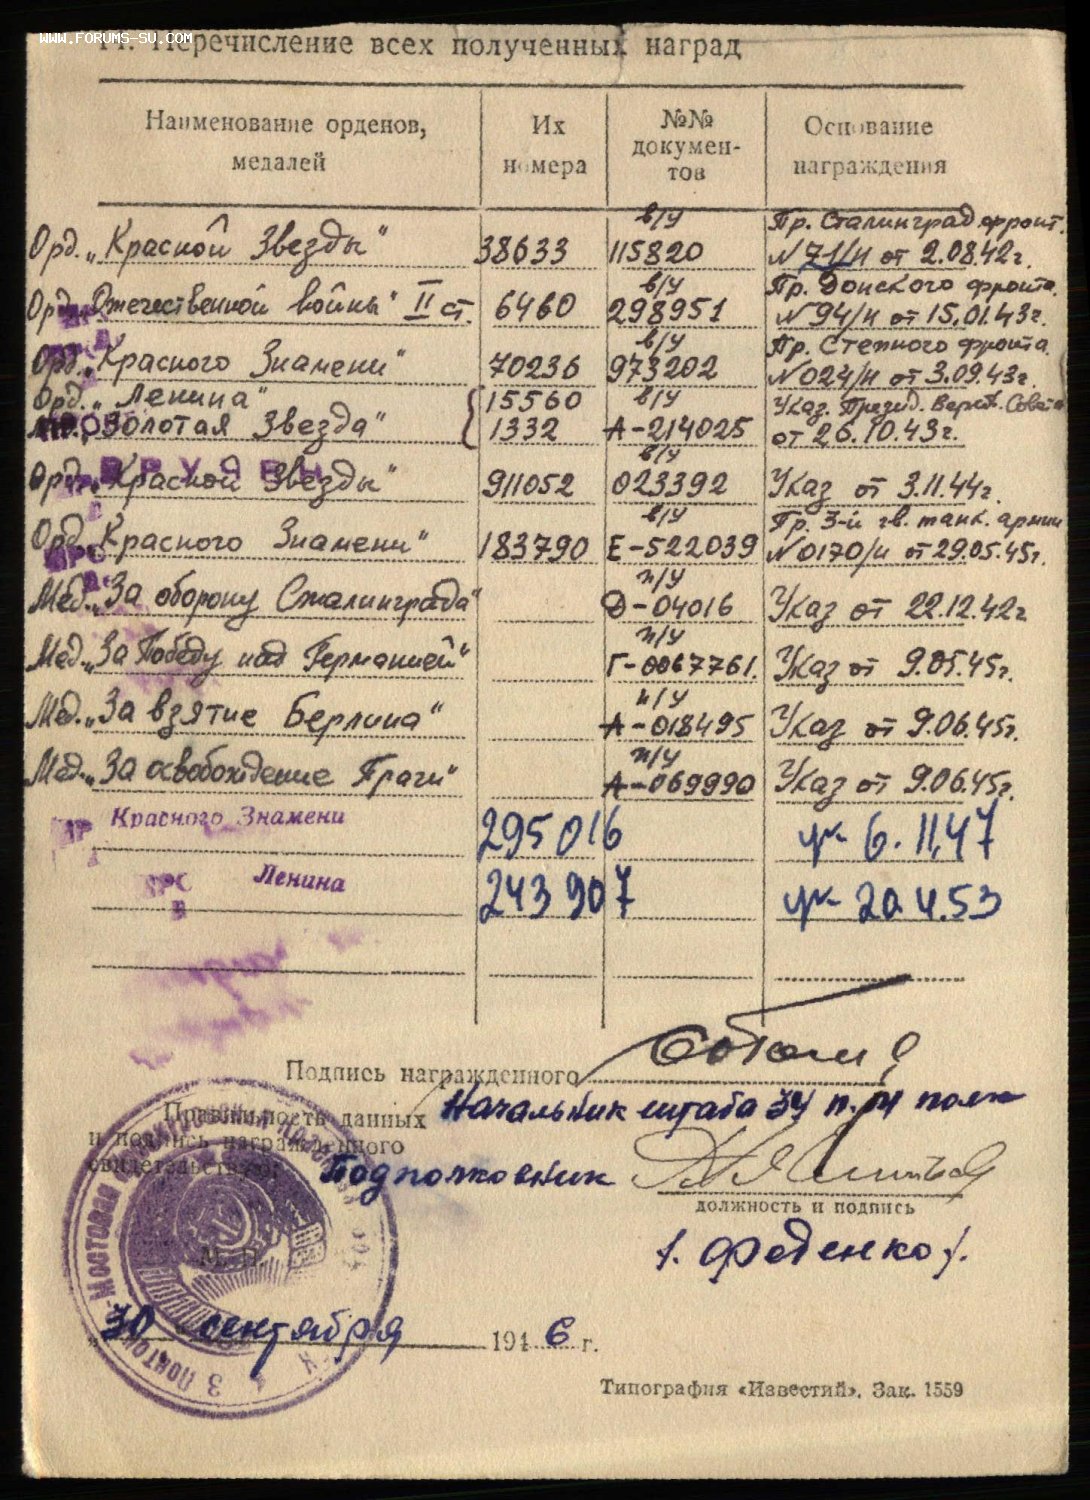 www.FORUMS-SU.com
11. Перечисление всех полученных наград
Наименование орденов, медалей
Их номера
№№ докумен-тов
Основание награждения
в/у Пр. Сталинград фронт.
Орд. „Красной Звезды" 38633 115820 N 71/н от 2.08.42г.
в/у Пр. Донского фронта.
Орд. „Отечественной войны" II ст. 6460 298951 N 94/н от 15.01.43г.
в/у Пр. Степного фронта.
Орд. „Красного Знамени" 70236 973202 N 024/н от 3.09.43г.
Орд. „Ленина" 15560 в/у Указ. Презид. Верх. Совета
„Золотая Звезда" 1332 А-214025 от 26.10.43г.
в/у
Орд. „Красной Звезды" 911052 023392 Указ от 3.11.44г.
в/у Пр. 3-й гв. танк. армии
Орд. „Красного Знамени" 183790 Е-522039 N 0170/н от 29.05.45г.
п/у
Мед. „За оборону Сталинграда" Д-04016 Указ от 22.12.42г
п/у
Мед. „За Победу над Германией" Г-0067761. Указ от 9.05.45г.
п/у
Мед. „За взятие Берлина" А-018495 Указ от 9.06.45г.
п/у
Мед. „За освобождение Праги" А-069990 Указ от 9.06.45г.
Красного Знамени 295016 ук 6.11.47
Ленина 243907 ук 20.4.53
Подпись награжденного
Правильность данных Начальник штаба
и подпись награжденного
свидетельствую: Подполковник
должность и подпись
М. П.
Феденко
„30 сентября 1946 г.
Типография «Известий». Зак. 1559